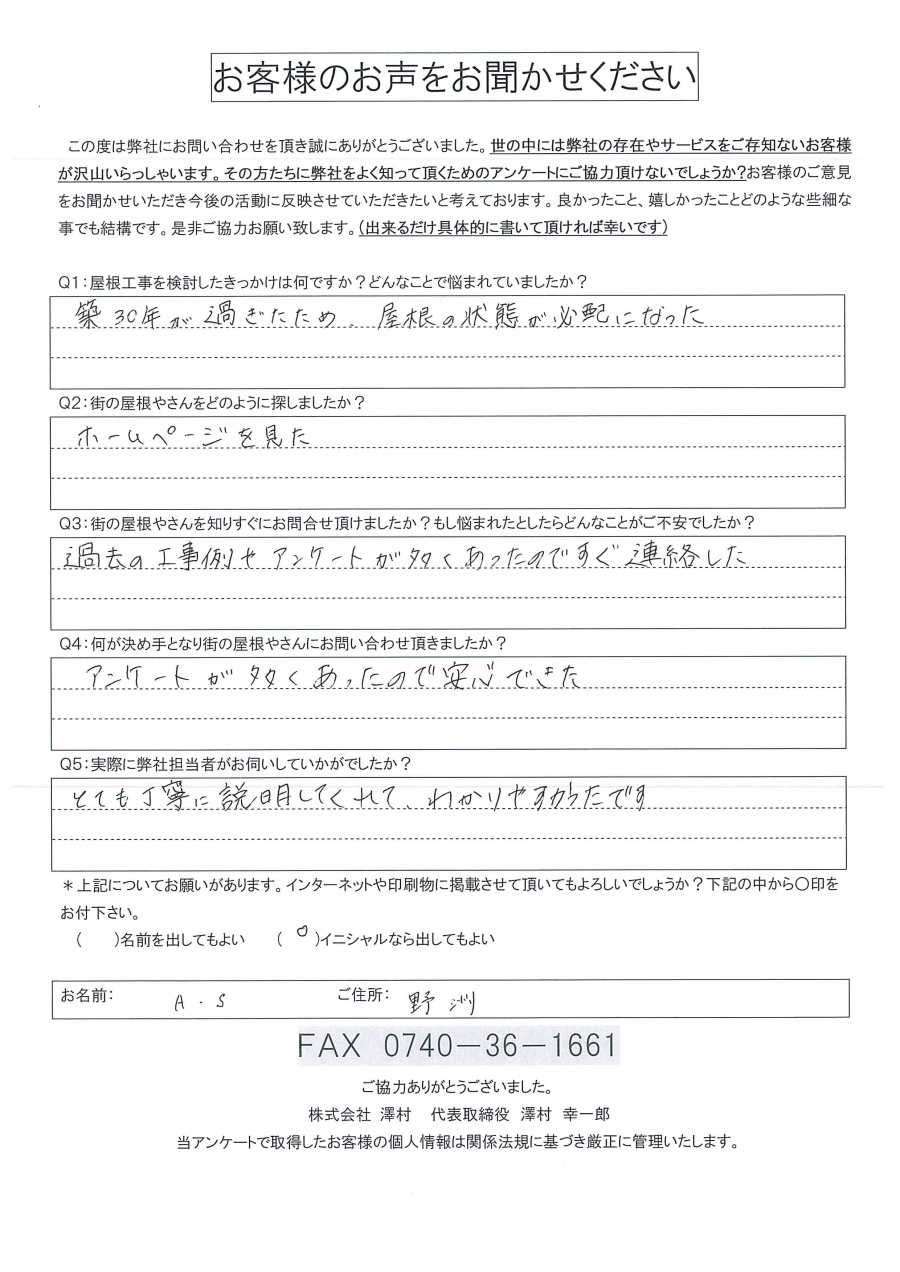 お客様のお声をお聞かせください
この度は弊社にお問い合わせを頂き誠にありがとうございました。世の中には弊社の存在やサービスをご存知ないお客様
が沢山いらっしゃいます。その方たちに弊社をよく知って頂くためのアンケートにご協力頂けないでしょうか?お客様のご意見
をお聞かせいただき今後の活動に反映させていただきたいと考えております。良かったこと、嬉しかったことどのような些細な
事でも結構です。是非ご協力お願い致します。(出来るだけ具体的に書いて頂ければ幸いです)
Q1:屋根工事を検討したきっかけは何ですか?どんなことで悩まれていましたか?
築30年が過ぎたため、屋根の状態が心配になった
Q2:街の屋根やさんをどのように探しましたか?
ホームページを見た
Q3:街の屋根やさんを知りすぐにお問合せ頂けましたか?もし悩まれたとしたらどんなことがご不安でしたか?
過去の工事例やアンケートが多くあったのですぐ連絡した
Q4:何が決め手となり街の屋根やさんにお問い合わせ頂きましたか?
アンケートが多くあったので安心できた
Q5:実際に弊社担当者がお伺いしていかがでしたか?
とても丁寧に説明してくれて、わかりやすかったです
*上記についてお願いがあります。インターネットや印刷物に掲載させて頂いてもよろしいでしょうか?下記の中から〇印を
お付下さい。
( )名前を出してもよい (○)イニシャルなら出してもよい
お名前: A.S ご住所: 野洲
FAX 0740-36-1661
ご協力ありがとうございました。
株式会社 澤村 代表取締役 澤村 幸一郎
当アンケートで取得したお客様の個人情報は関係法規に基づき厳正に管理いたします。